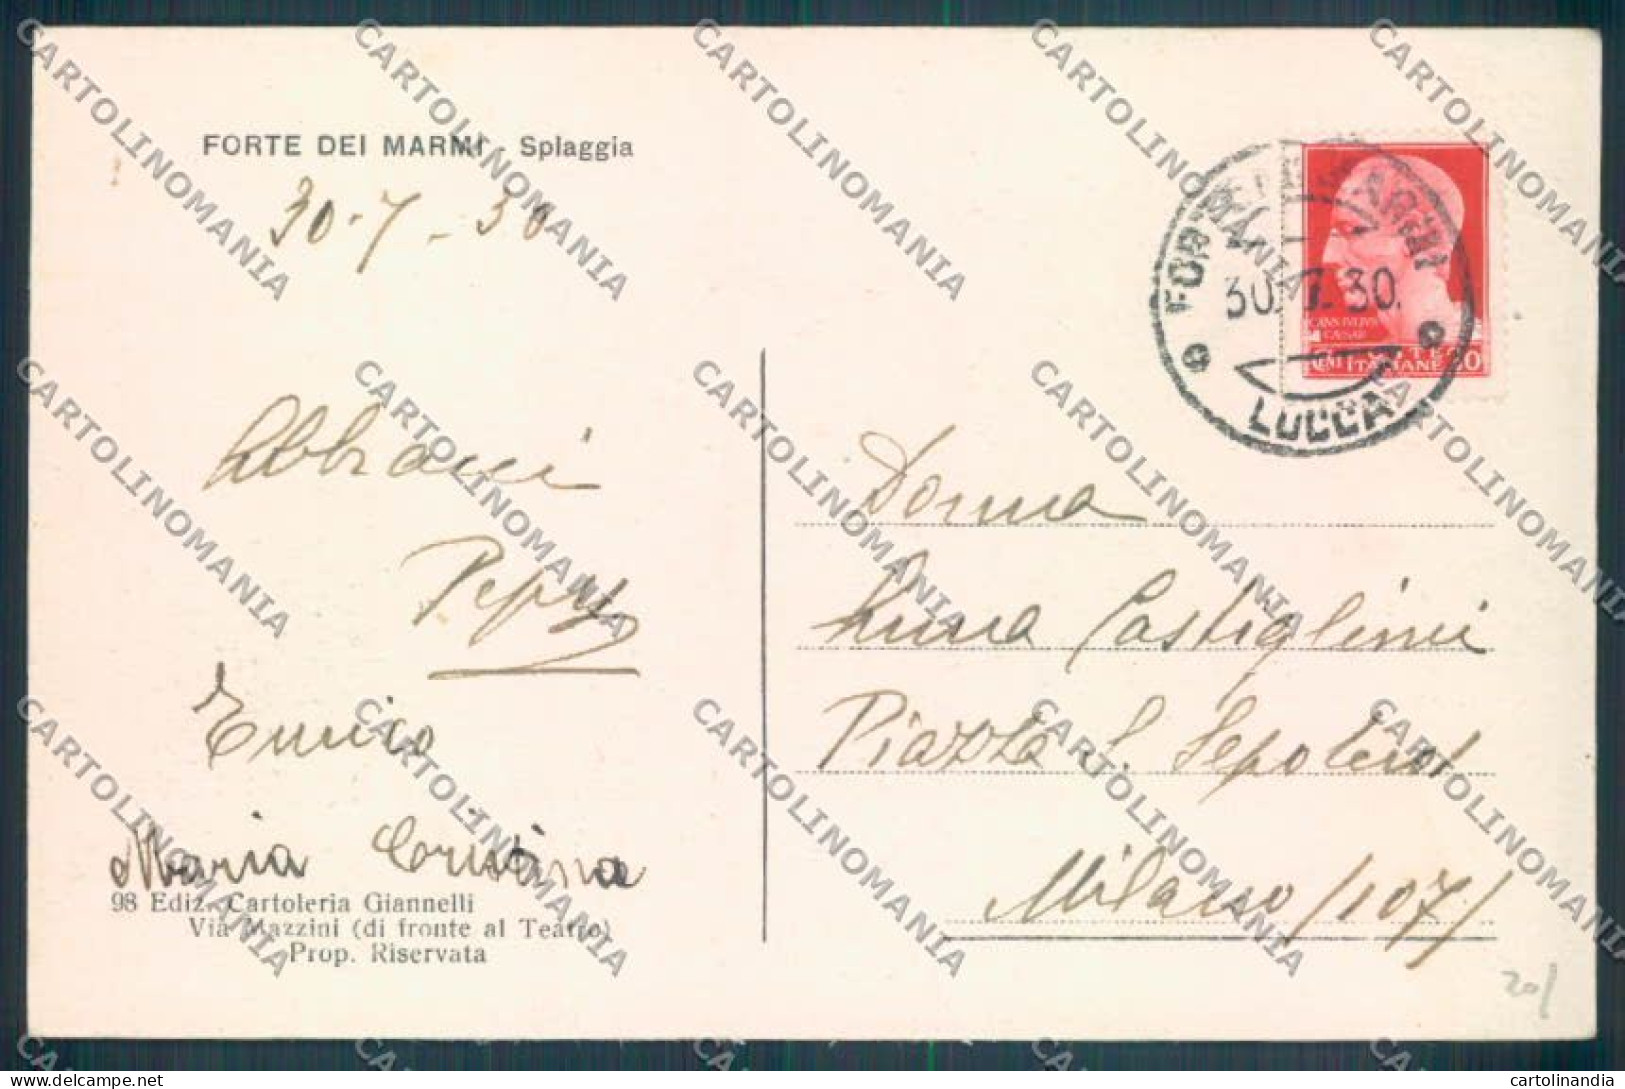 FORTE DEI MARMI - Spiaggia
30-7-30
Abbracci
Pepy
Enrico
Maria Cristina
98 Ediz. Cartoleria Giannelli
Via Mazzini (di fronte al Teatro)
Prop. Riservata
FORTE DEI MARMI
30. 7. 30.
LUCCA
CAIVS IVLIVS
CAESAR
POSTE
CENT ITALIANE 20
Donna
Luna Castiglioni
Piazza S. Sepolcro
Milano /107/
20/
CARTOLINOMANIA
cartolinandia